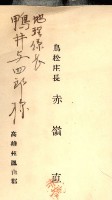 鳥松庄長 赤嶺
地理係長
鴨井与四郎 様
高雄州鳳山郡